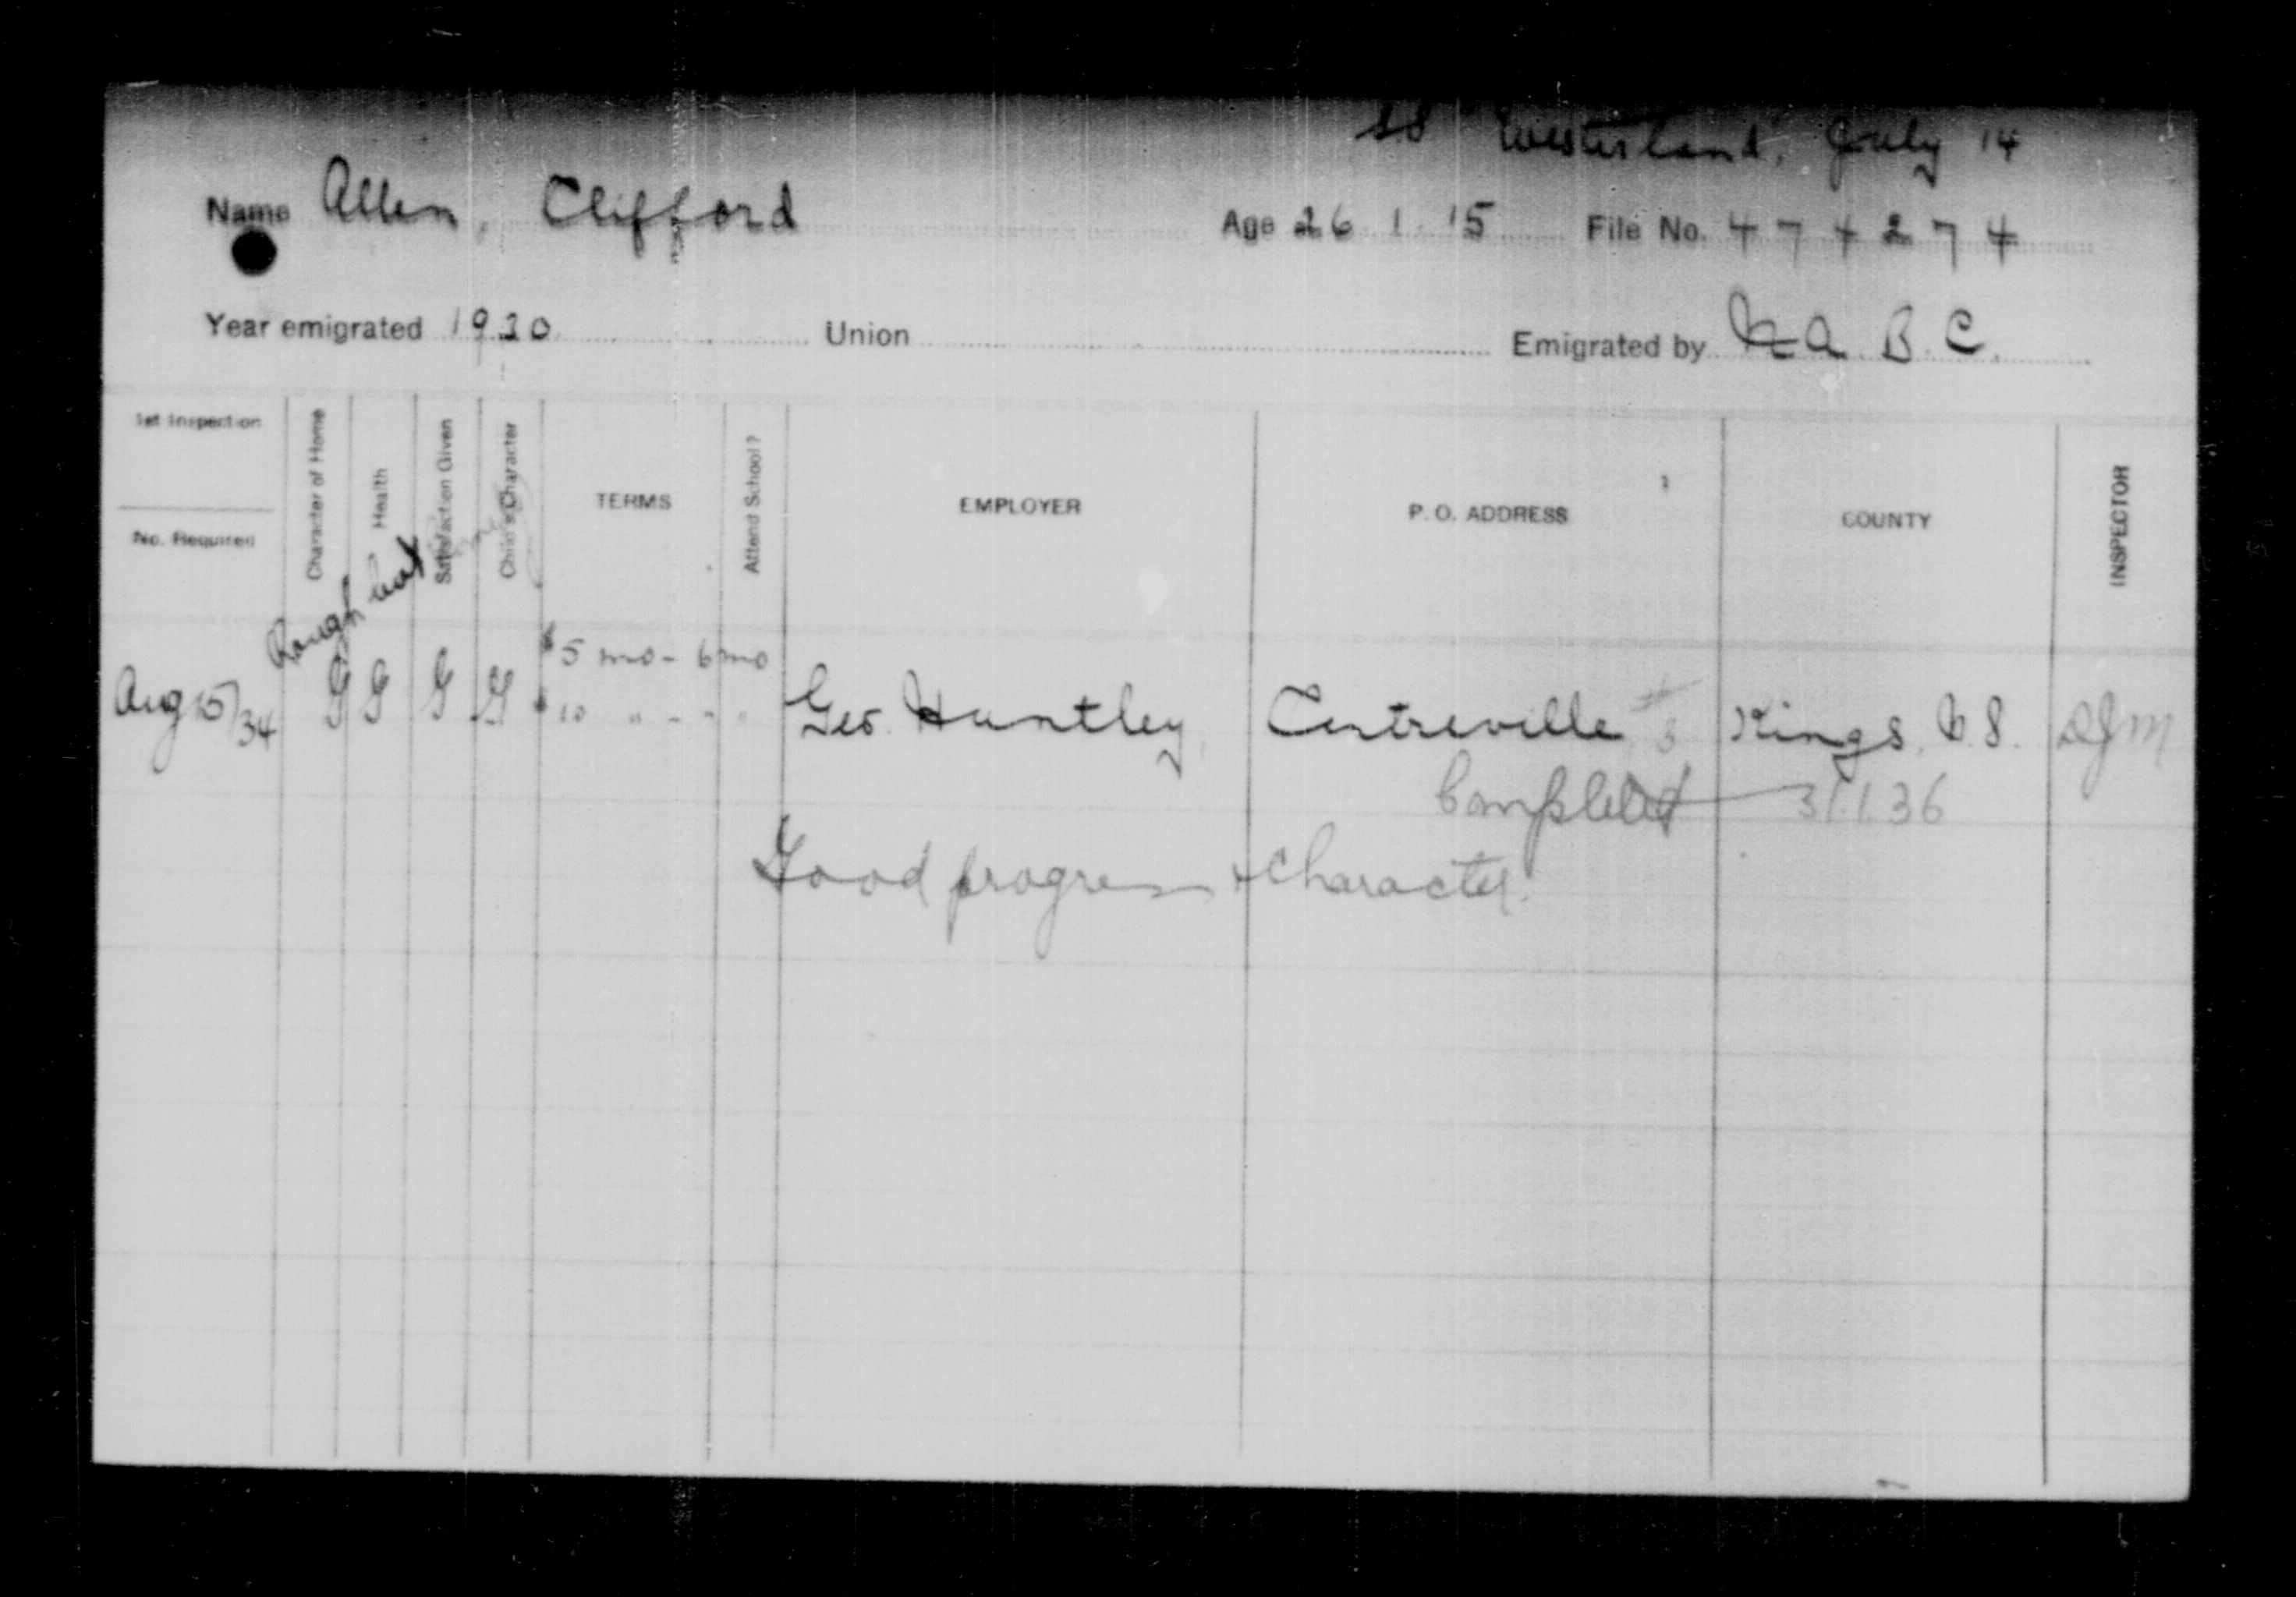 SS Westerland, July 14
Name Allen, Clifford Age 26.1.15 File No. 474274
Year emigrated 1930 Union Emigrated by N.A.B.C.
1st Inspection
No. Required
Character of Home
Health
Satisfaction Given
Child's Character
TERMS
Attend School?
EMPLOYER
P. O. ADDRESS
COUNTY
INSPECTOR
Rough but
$5 mo - 6 mo
Aug 15/34 G G G G $10 " - - " Geo. Huntley, Centreville Kings, N.S. DJM
Completed 31.1.36
Good progress + character.